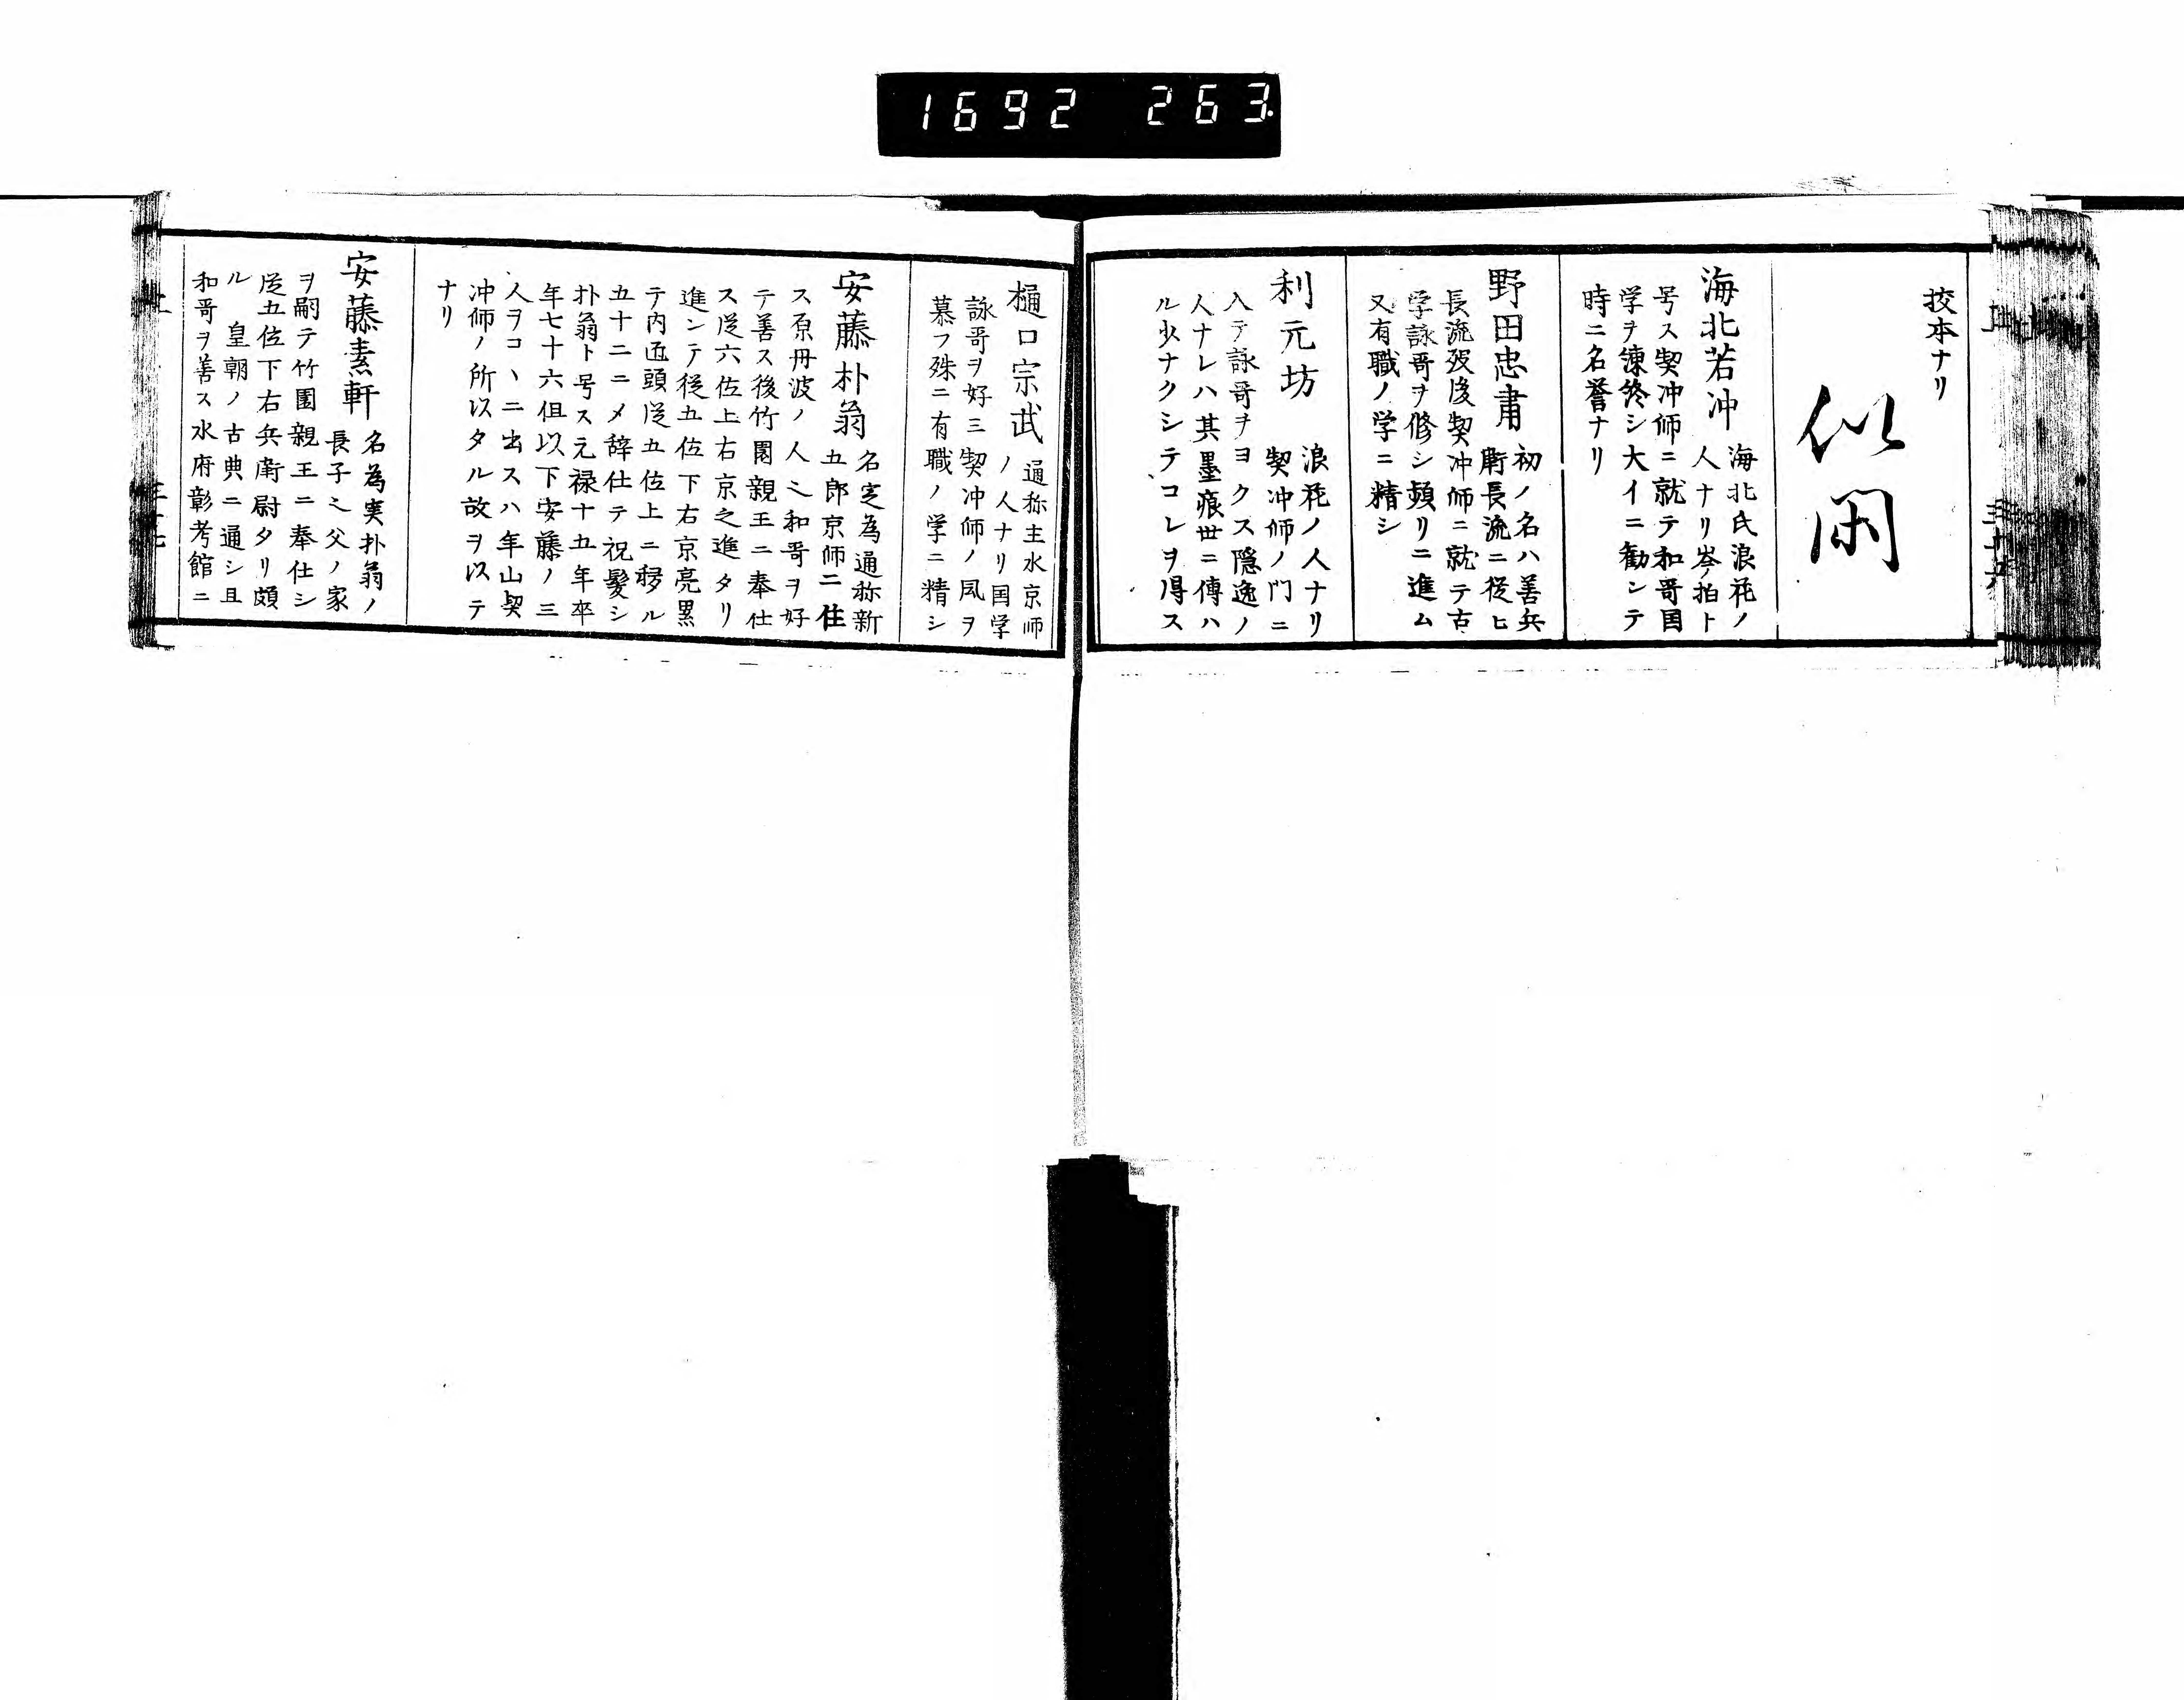 1692 263
挍本ナリ
似閑
海北若冲
海北氏浪花ノ
人ナリ岑ノ拍ト
号ス契冲師ニ就テ和哥国
学ヲ諌終シ大イニ勧ンテ
時ニ名誉ナリ
野田忠肅
初ノ名ハ善兵
衛長流ニ從ヒ
長流歿後契冲師ニ就テ古
学詠哥ヲ修シ頻リニ進ム
又有職ノ学ニ精シ
利元坊
浪花ノ人ナリ
契冲師ノ门ニ
入テ詠哥ヲヨクス隠逸ノ
人ナレハ其墨痕世ニ傳ハ
ル少ナクシテコレヲ得ス
樋口宗武
通称主水京師
ノ人ナリ国学
詠哥ヲ好ミ契冲師ノ風ヲ
慕フ殊ニ有職ノ学ニ精シ
安藤朴翁
名定為通称新
五郎京師ニ住
ス原丹波ノ人之和哥ヲ好
テ善ス後竹園親王ニ奉仕
ス従六位上右京之進タリ
進ンテ従五位下右京亮累
テ内匠頭従五位上ニ移ル
五十二ニメ辞仕テ祝髪シ
朴翁ト号ス元禄十五年卒
年七十六但以下安藤ノ三
人ヲコヽニ出スハ年山契
冲師ノ所以タル故ヲ以テ
ナリ
安藤素軒
名為実朴翁ノ
長子之父ノ家
ヲ嗣テ竹園親王ニ奉仕シ
従五位下右兵衛尉タリ頗
ル 皇朝ノ古典ニ通シ且
和哥ヲ善ス水府彰考館ニ